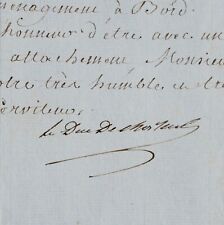 ménagement à Bord.
honneur d'être avec un
attachement Monsieu
otre très humble et tr
serviteur
Le Duc De